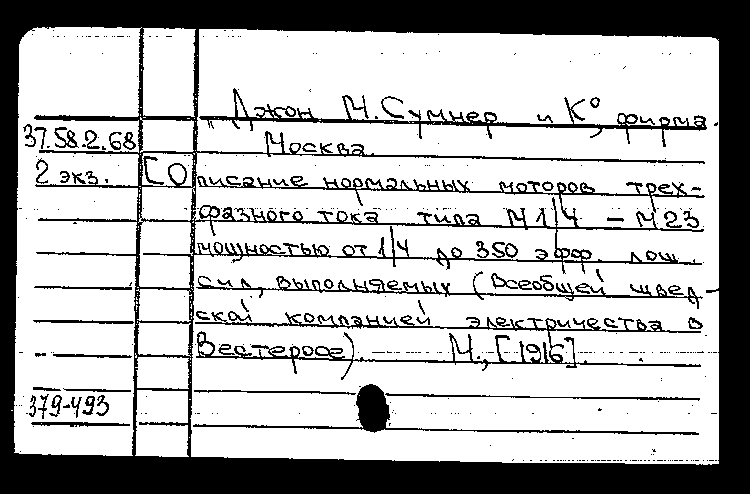 „Джон М. Сумнер и К°, фирма.
37.58.2.68 Москва.
2 экз. [Описание нормальных моторов трех-
фазного тока типа М 1/4 – М 23
мощностью от 1/4 до 350 эфф. лош.
сил, выполняемых (Всеобщей швед-
ской компанией электричества в
Вестеросе). — М., [1916].
379-493